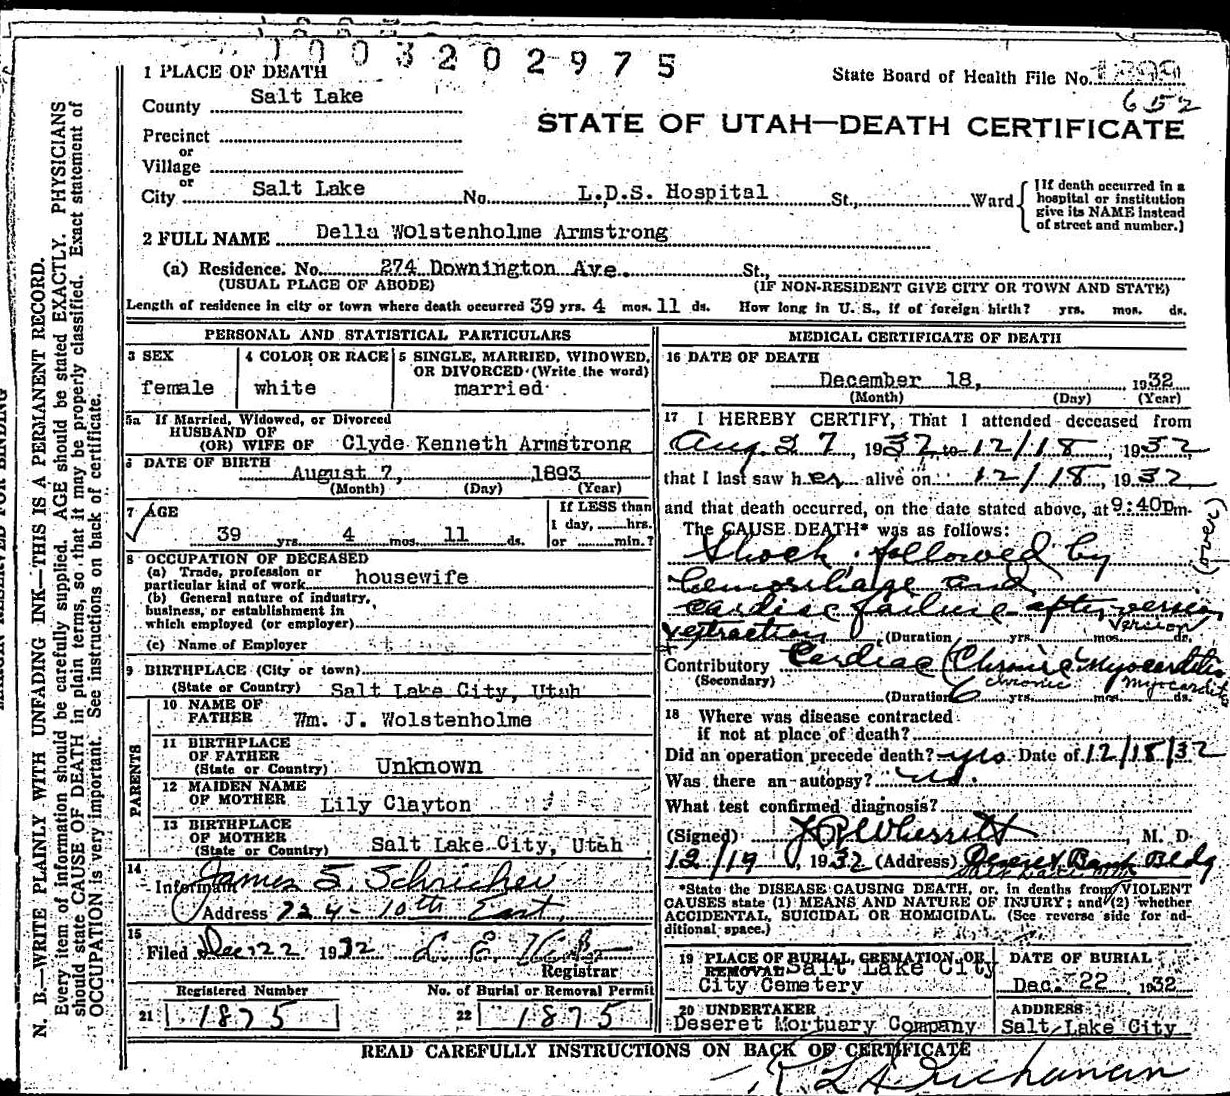 1003202975
1 PLACE OF DEATH
State Board of Health File No.
652
County Salt Lake
STATE OF UTAH—DEATH CERTIFICATE
Precinct
or
Village
or
City Salt Lake No. L.D.S. Hospital St., Ward
[If death occurred in a
hospital or institution
give its NAME instead
of street and number.]
2 FULL NAME Della Wolstenholme Armstrong
(a) Residence. No. 274 Downington Ave. St.,
(USUAL PLACE OF ABODE) (IF NON-RESIDENT GIVE CITY OR TOWN AND STATE)
Length of residence in city or town where death occurred 39 yrs. 4 mos. 11 ds. How long in U. S., if of foreign birth? yrs. mos. ds.
PERSONAL AND STATISTICAL PARTICULARS
3 SEX
female
4 COLOR OR RACE
white
5 SINGLE, MARRIED, WIDOWED,
OR DIVORCED (Write the word)
married
5a If Married, Widowed, or Divorced
HUSBAND OF
(OR) WIFE OF Clyde Kenneth Armstrong
6 DATE OF BIRTH
August 7, 1893
(Month) (Day) (Year)
7 AGE
39 yrs. 4 mos. 11 ds.
If LESS than
1 day, hrs.
or min.?
8 OCCUPATION OF DECEASED
(a) Trade, profession or
particular kind of work housewife
(b) General nature of industry,
business, or establishment in
which employed (or employer)
(c) Name of Employer
9 BIRTHPLACE (City or town)
(State or Country) Salt Lake City, Utah
PARENTS
10 NAME OF
FATHER Wm. J. Wolstenholme
11 BIRTHPLACE
OF FATHER
(State or Country) Unknown
12 MAIDEN NAME
OF MOTHER Lily Clayton
13 BIRTHPLACE
OF MOTHER
(State or Country) Salt Lake City, Utah
14
Informant James S. Schricker
Address 724 - 10th East,
15
Filed Dec 22 1932
Registrar
Registered Number
21 1875
No. of Burial or Removal Permit
22 1875
MEDICAL CERTIFICATE OF DEATH
16 DATE OF DEATH
December 18, 1932
(Month) (Day) (Year)
17 I HEREBY CERTIFY, That I attended deceased from
Aug. 27, 1932 to 12/18, 1932,
that I last saw her alive on 12/18, 1932
and that death occurred, on the date stated above, at 9:40pm.
The CAUSE DEATH* was as follows:
(over)
Shock followed by
hemorrhage and
cardiac failure after version
version
extraction (Duration yrs. mos. ds.
Contributory Cardiac (Chronic Myocarditis
(Secondary) chronic myocarditis
(Duration 6 yrs. mos. ds.
18 Where was disease contracted
if not at place of death?
Did an operation precede death? yes Date of 12/18/32
Was there an autopsy? no.
What test confirmed diagnosis?
(Signed) M. D.
12/19, 1932 (Address) Deseret Bank Bldg
*State the DISEASE CAUSING DEATH, or, in deaths from VIOLENT
CAUSES state (1) MEANS AND NATURE OF INJURY; and (2) whether
ACCIDENTAL, SUICIDAL OR HOMICIDAL. (See reverse side for ad-
ditional space.)
19 PLACE OF BURIAL, CREMATION, OR
REMOVAL Salt Lake City
City Cemetery
DATE OF BURIAL
Dec. 22 1932
20 UNDERTAKER
Deseret Mortuary Company
ADDRESS
Salt Lake City
READ CAREFULLY INSTRUCTIONS ON BACK OF CERTIFICATE
Buchanan
N. B.—WRITE PLAINLY WITH UNFADING INK—THIS IS A PERMANENT RECORD.
Every item of information should be carefully supplied. AGE should be stated EXACTLY. PHYSICIANS
should state CAUSE OF DEATH in plain terms, so that it may be properly classified. Exact statement of
OCCUPATION is very important. See instructions on back of certificate.